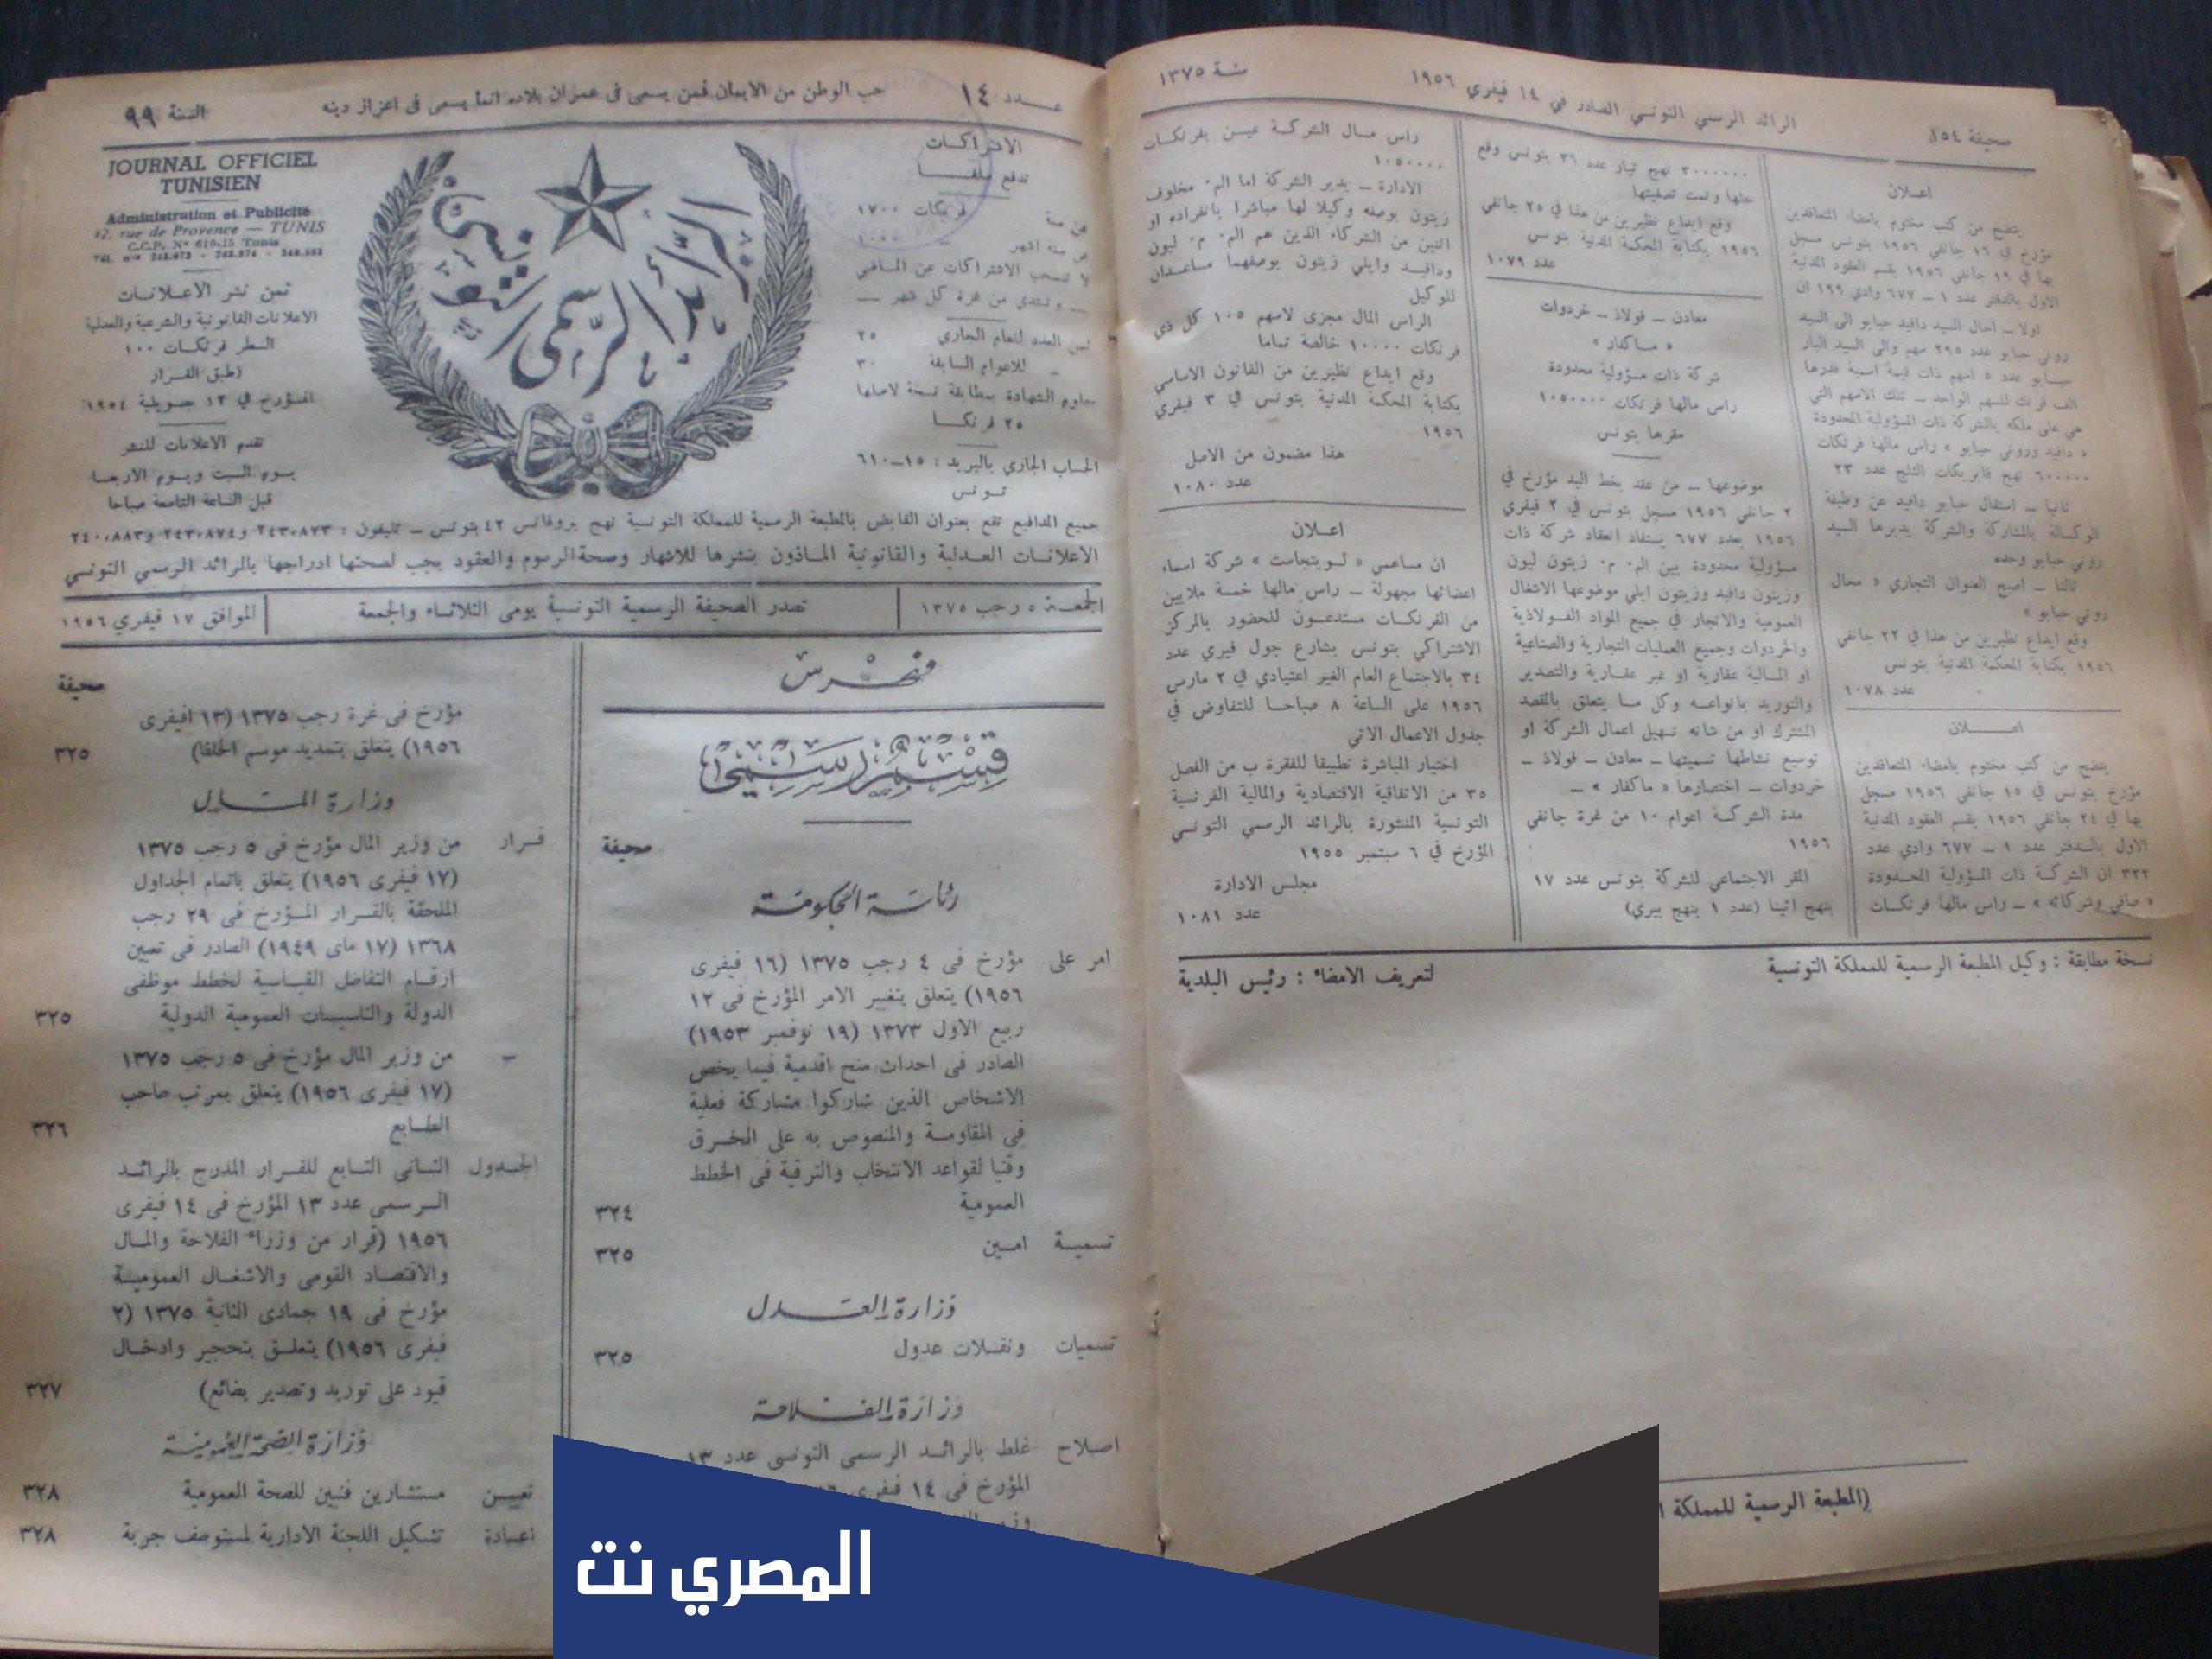 صحيفة ١٥٤
الرائد الرسمي التونسي الصادر في ١٤ فيفري ١٩٥٦
سنة ١٣٧٥
اعلان
يتضح من كتب مختوم بامضاء المتعاقدين
مؤرخ في ١٦ جانفي ١٩٥٦ بتونس مسجل
بها في ١٩ جانفي ١٩٥٦ بقسم العقود المدنية
الاول بالدفتر عدد ١ ــ ٦٧٧ وادي ١٩٩ ان
اولا ــ احال السيد دافيد حبابو الى السيد
روني حبابو عدد ٢٩٥ سهم والى السيد البار
حبابو عدد ٥ اسهم ذات قيمة اسمية قدرها
الف فرنك للسهم الواحد ــ تلك الاسهم التي
هي على ملكه بالشركة ذات المسؤولية المحدودة
« دافيد وروني حبابو » راس مالها فرنكات
٦٠٠٠٠٠ نهج فابريكات الثلج عدد ٢٣
ثانيا ــ استقال حبابو دافيد عن وظيفة
الوكالة بالمشاركة والشركة يديرها السيد
روني حبابو وحده
ثالثا ــ اصبح العنوان التجاري « محال
روني حبابو »
وقع ايداع نظيرين من هذا في ٢٢ جانفي
١٩٥٦ بكتابة المحكمة المدنية بتونس
عدد ١٠٧٨
اعــلان
يتضح من كتب مختوم بامضاء المتعاقدين
مؤرخ بتونس في ١٥ جانفي ١٩٥٦ مسجل
بها في ٢٤ جانفي ١٩٥٦ بقسم العقود المدنية
الاول بالدفتر عدد ١ ــ ٦٧٧ وادي عدد
٣٢٢ ان الشركة ذات المسؤولية المحدودة
« صافي وشركائه » ــ راس مالها فرنكات
٣٠٠٠٠٠٠ نهج تيار عدد ٣٦ بتونس وقع
حلها وتمت تصفيتها
وقع ايداع نظيرين من هذا في ٢٥ جانفي
١٩٥٦ بكتابة المحكمة المدنية بتونس
عدد ١٠٧٩
معادن ــ فولاذ ــ خردوات
« ماكفار »
شركة ذات مسؤولية محدودة
راس مالها فرنكات ١٠٥٠٠٠٠
مقرها بتونس
موضوعها ــ من عقد بخط اليد مؤرخ في
٢ جانفي ١٩٥٦ مسجل بتونس في ٢ فيفري
١٩٥٦ بعدد ٦٧٧ يستفاد انعقاد شركة ذات
مسؤولية محدودة بين الم٠ م٠ زيتون ليون
وزيتون دافيد وزيتون ايلي موضوعها الاشغال
العمومية والاتجار في جميع المواد الفولاذية
والخردوات وجميع العمليات التجارية والصناعية
او المالية عقارية او غير عقارية والتصدير
والتوريد بانواعه وكل ما يتعلق بالمقصد
المشترك او من شانه تسهيل اعمال الشركة او
توسيع نشاطها تسميتها ــ معادن ــ فولاذ ــ
خردوات ــ اختصارها « ماكفار » ــ
مدة الشركة اعوام ١٠ من غرة جانفي
١٩٥٦
المقر الاجتماعي للشركة بتونس عدد ١٧
بنهج اثينا (عدد ١ بنهج بيري)
راس مال الشركة عين بفرنكات
١٠٥٠٠٠٠
الادارة ــ يدير الشركة اما الم٠ مخلوف
زيتون بوصفه وكيلا لها مباشرا بانفراده او
اثنين من الشركاء الذين هم الم٠ م٠ ليون
ودافيد وايلي زيتون بوصفهما مساعدان
للوكيل
الراس المال مجزى لاسهم ١٠٥ كل ذي
فرنكات ١٠٠٠٠ خالصة تماما
وقع ايداع نظيرين من القانون الاساسي
بكتابة المحكمة المدنية بتونس في ٣ فيفري
١٩٥٦
هذا مضمون من الاصل
عدد ١٠٨٠
اعــلان
ان مساهمي « لويتجاست » شركة اسماء
اعضائها مجهولة ــ راس مالها خمسة ملايين
من الفرنكات مستدعون للحضور بالمركز
الاشتراكي بتونس بشارع جول فيري عدد
٣٤ بالاجتماع العام الغير اعتيادي في ٢ مارس
١٩٥٦ على الساعة ٨ صباحا للتفاوض في
جدول الاعمال الاتي
اختيار المباشرة تطبيقا للفقرة ب من الفصل
٣٥ من الاتفاقية الاقتصادية والمالية الفرنسية
التونسية المنشورة بالرائد الرسمي التونسي
المؤرخ في ٦ سبتمبر ١٩٥٥
مجلس الادارة
عدد ١٠٨١
نسخة مطابقة : وكيل المطبعة الرسمية للمملكة التونسية
لتعريف الامضاء : رئيس البلدية
(المطبعة الرسمية للمملكة ا
عــدد ١٤
حب الوطن من الايمان فمن يسعى فى عمران بلاده انما يسعى فى اعزاز دينه
السنة ٩٩
الاشتراكات
تدفع سلفا
عن سنة
فرنكات ١٧٠٠
عن ستة اشهر
لا تنسحب الاشتراكات عن الماضى
ــ وتبتدى من غرة كل شهر ــ
ثمن العدد للعام الجاري ٢٥
ــ للاعوام السابقة ٣٠
معلوم الشهادة بمطابقة نسخة لاصلها
٢٥ فرنكا
الحساب الجاري بالبريد : ١٥ــ٦١٠
تونس
الرائد الرسمى التونسى
JOURNAL OFFICIEL
TUNISIEN
Administration et Publicité
42, rue de Provence — TUNIS
C.C.P. N° 610-15 Tunis
ثمن نشر الاعلانات
الاعلانات القانونية والشرعية والعدلية
السطر فرنكات ١٠٠
(طبق القرار
المؤرخ في ١٢ جويلية ١٩٥٤
تقدم الاعلانات للنشر
يوم السبت ويوم الاربعا
قبل الساعة التاسعة صباحا
جميع المدافيع تقع بعنوان القابض بالمطبعة الرسمية للمملكة التونسية نهج بروفانس ٤٢ بتونس ــ تليفون : ٢٤٣٠٨٧٣ و٢٤٣٠٨٧٤ و٢٤٠٠٨٨٣
الاعلانات العدلية والقانونية الماذون بنشرها للاشهار وصحة الرسوم والعقود يجب لصحتها ادراجها بالرائد الرسمي التونسي
الجمعة ٥ رجب ١٣٧٥
تصدر الصحيفة الرسمية التونسية يومى الثلاثاء والجمعة
الموافق ١٧ فيفري ١٩٥٦
فهرس
قسم رسمي
صحيفة
رئاسة الحكومة
امر على مؤرخ فى ٤ رجب ١٣٧٥ (١٦ فيفرى
١٩٥٦) يتعلق بتغيير الامر المؤرخ فى ١٢
ربيع الاول ١٣٧٣ (١٩ نوفمبر ١٩٥٣)
الصادر فى احداث منح اقدمية فيما يخص
الاشخاص الذين شاركوا مشاركة فعلية
في المقاومة والمنصوص به على الخرق
وقتيا لقواعد الانتخاب والترقية فى الخطط
العمومية ٣٢٤
تسمية امين ٣٢٥
وزارة العدل
تسميات ونقلات عدول ٣٢٥
وزارة الفلاحة
اصلاح غلط بالرائد الرسمى التونسى عدد ١٣
المؤرخ فى ١٤ فيفرى
صحيفة
مؤرخ فى غرة رجب ١٣٧٥ (١٣ فيفرى
١٩٥٦) يتعلق بتمديد موسم الحلفا) ٣٢٥
وزارة المال
قرار من وزير المال مؤرخ فى ٥ رجب ١٣٧٥
(١٧ فيفرى ١٩٥٦) يتعلق باتمام الجداول
الملحقة بالقرار المؤرخ فى ٢٩ رجب
١٣٦٨ (١٧ ماى ١٩٤٩) الصادر فى تعيين
ارقام التفاضل القياسية لخطط موظفى
الدولة والتاسيسات العمومية الدولية ٣٢٥
ــ من وزير المال مؤرخ فى ٥ رجب ١٣٧٥
(١٧ فيفرى ١٩٥٦) يتعلق بمرتب صاحب
الطابع ٣٢٦
الجدول الثانى التابع للقرار المدرج بالرائد
الرسمى عدد ١٣ المؤرخ فى ١٤ فيفرى
١٩٥٦ (قرار من وزراء الفلاحة والمال
والاقتصاد القومى والاشغال العمومية
مؤرخ فى ١٩ جمادى الثانية ١٣٧٥ (٢
فيفرى ١٩٥٦) يتعلق بتحجير وادخال
قيود على توريد وتصدير بضائع) ٣٢٧
وزارة الصحة العمومية
تعيين مستشارين فنيين للصحة العمومية ٣٢٨
اعادة تشكيل اللجنة الادارية لمستوصف جربة ٣٢٨
المصري نت